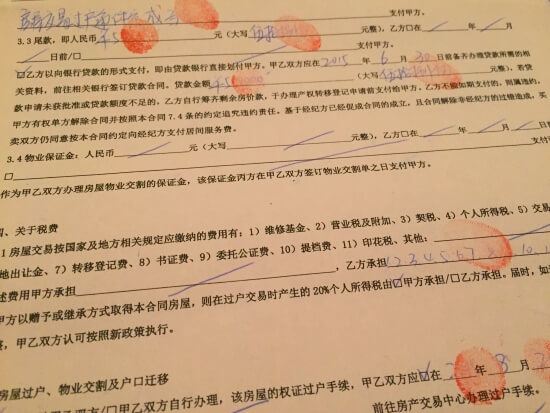 成功
支付甲方。
3.3 尾款，即人民币 元（大写 元整），乙方□在 年 月
日前/□ 支付甲方。
□乙方以向银行贷款的形式支付，即由贷款银行直接划付甲方。甲乙双方应在 2015 年 6 月 30 日前备齐办理贷款所需的相
关资料，前往相关银行签订贷款合同。贷款金额 （大写 元整），若贷
款申请未获批准或贷款额度不足的，乙方自行筹齐剩余房价款，于办理产权转移登记申请前支付给甲方。乙方不能如期支付的，则属违约，
甲方有权单方解除合同并按照本合同 7.4 条的约定追究违约责任。基于经纪方已经促成合同的成立，且合同解除非经纪方的过错造成，买
卖双方仍同意按本合同约定向经纪方支付居间服务费。
3.4 物业保证金：人民币 元（大写 元整），乙方□在 年 月
□ 支付
作为甲乙双方办理房屋物业交割的保证金，该保证金丙方在甲乙双方签订物业交割单之日支付甲方。
四、关于税费
1 房屋交易按国家及地方相关规定应缴纳的费用有：1）维修基金、2）营业税及附加、3）契税、4）个人所得税、5）交易
地出让金、7）转移登记费、8）书证费、9）委托公证费、10）提档费、11）印花税、其他：
述费用甲方承担 ，乙方承担 1、2、3、4、5、6、7、8、 10、
甲方以赠予或继承方式取得本合同房屋，则在过户交易时产生的 20%个人所得税由☑甲方承担/□乙方承担。届时，如
整，甲乙双方认可按照新政策执行。
房屋过户、物业交割及户口迁移
甲乙双方/□甲乙双方自行办理，该房屋的权证过户手续，甲乙双方应☑在 年 8 月
前往房产交易中心办理过户手续。